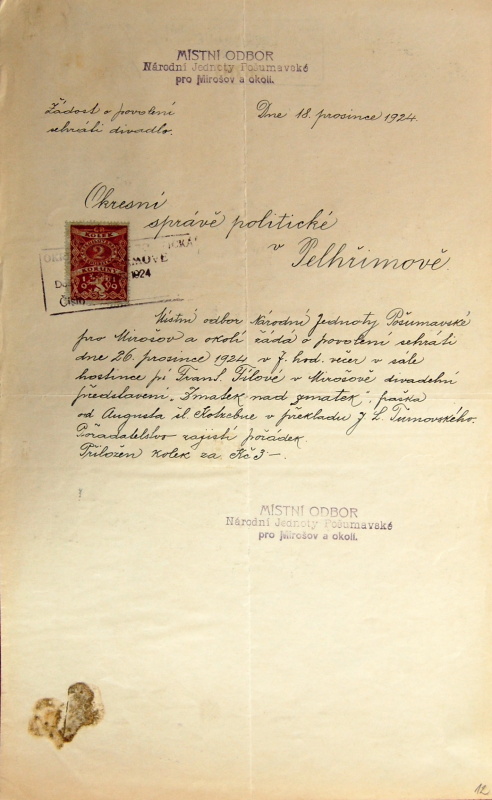 MÍSTNÍ ODBOR
Národní Jednoty Pošumavské
pro Mirošov a okolí.
Žádost o povolení
sehráti divadlo.
Dne 18. prosince 1924.
Okresní
správě politické
v Pelhřimově.
KOLEK
2
KORUNY
1924
Číslo
Místní odbor Národní Jednoty Pošumavské
pro Mirošov a okolí žádá o povolení sehráti
dne 26. prosince 1924 v 7. hod. večer v sále
hostince pí Frant. Fílové v Mirošově divadelní
představení „Zmatek nad zmatek", fraška
od Augusta šl. Kotzebue v překladu J. L. Turnovského.
Pořadatelstvo zajistí pořádek.
Přiložen kolek za Kč 3 —.
MÍSTNÍ ODBOR
Národní Jednoty Pošumavské
pro Mirošov a okolí.
12